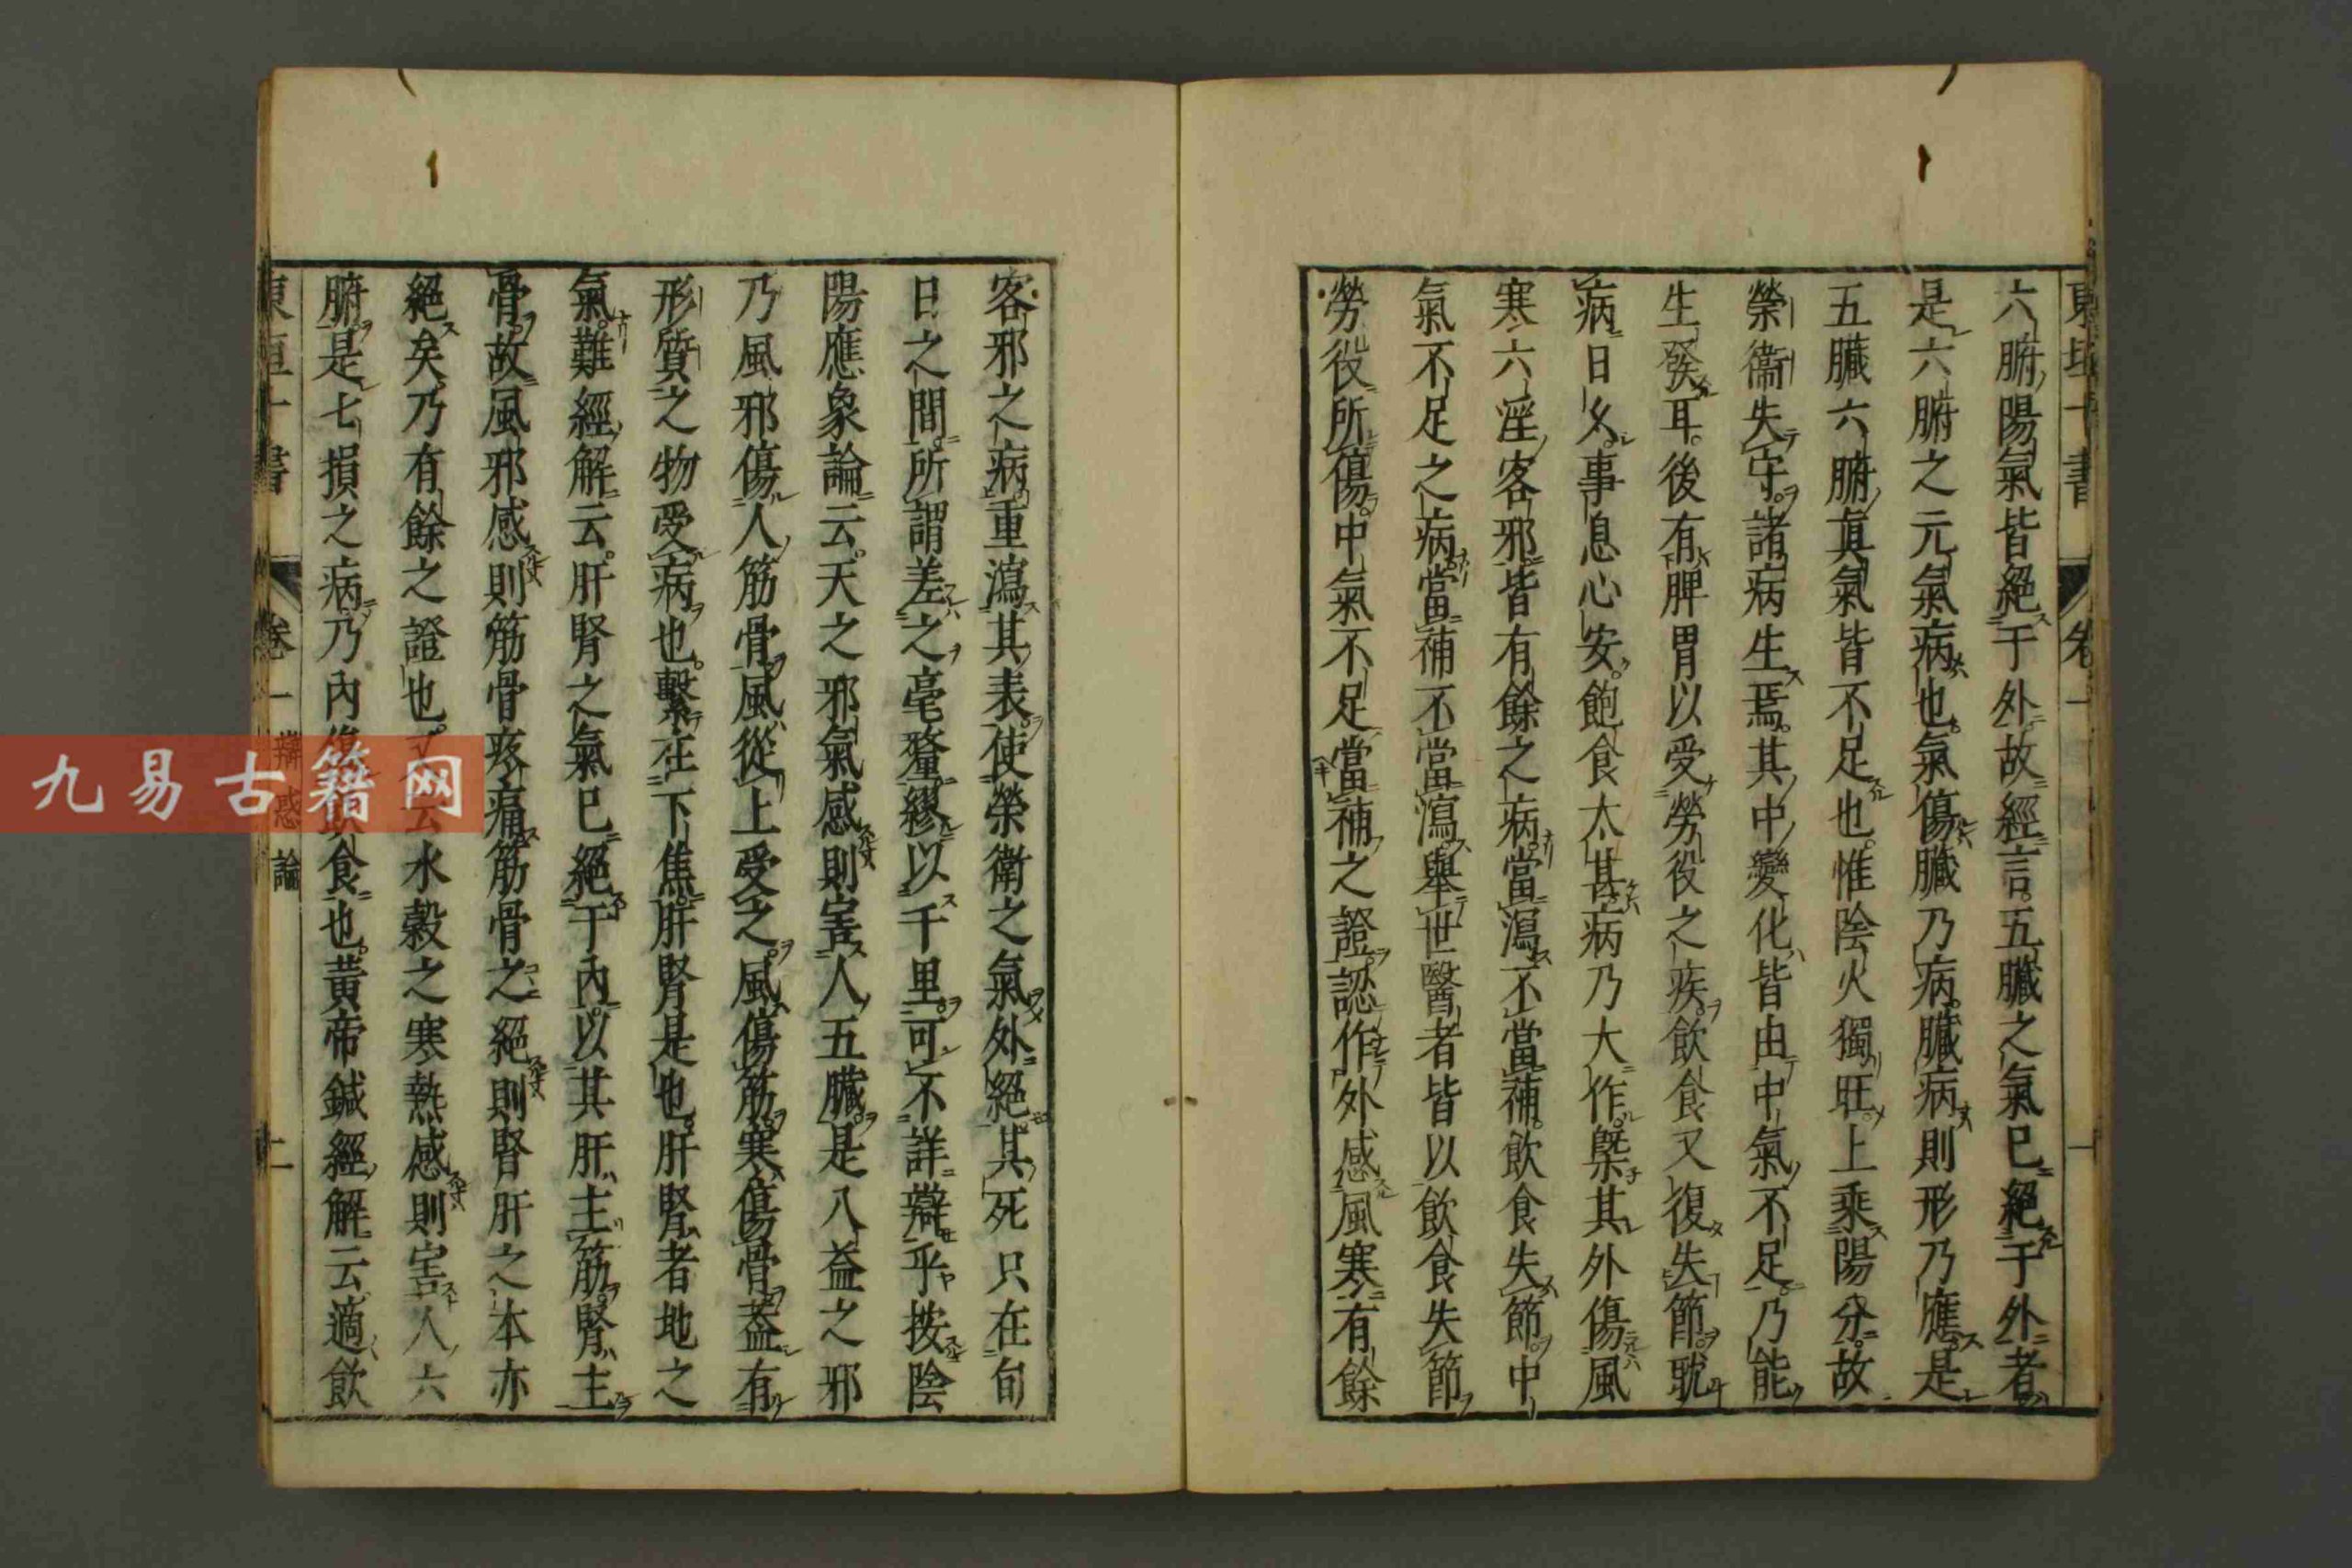 六腑陽氣皆絕于外故經言五臟之氣已絕于外者
是六腑之元氣病也氣傷臟乃病臟病則形乃應是
五臟六腑真氣皆不足也惟陰火獨旺上乘陽分故
榮衞失守諸病生焉其中變化皆由中氣不足乃能
生發耳後有脾胃以受勞役之疾飲食又復失節耽
病日久事息心安飽食太甚病乃大作槩其外傷風
寒六淫客邪皆有餘之病當瀉不當補飲食失節中
氣不足之病當補不當瀉舉世醫者皆以飲食失節
勞役所傷中氣不足當補之證認作外感風寒有餘
客邪之病重瀉其表使榮衛之氣外絕其死只在旬
日之間所謂差之毫釐繆以千里可不詳辯乎按陰
陽應象論云天之邪氣感則害人五臟是八益之邪
乃風邪傷人筋骨風從上受之風傷筋寒傷骨蓋有
形質之物受病也繫在下焦肝腎是也肝腎者地之
氣難經解云肝腎之氣已絕于內以其肝主筋腎主
骨故風邪感則筋骨疼痛筋骨之絕則腎肝之本亦
絕矣乃有餘之證也又云水穀之寒熱感則害人六
腑是七損之病乃內傷飲食也黃帝鍼經解云適飲
東垣十書 卷一 辯惑論 二
九易古籍网